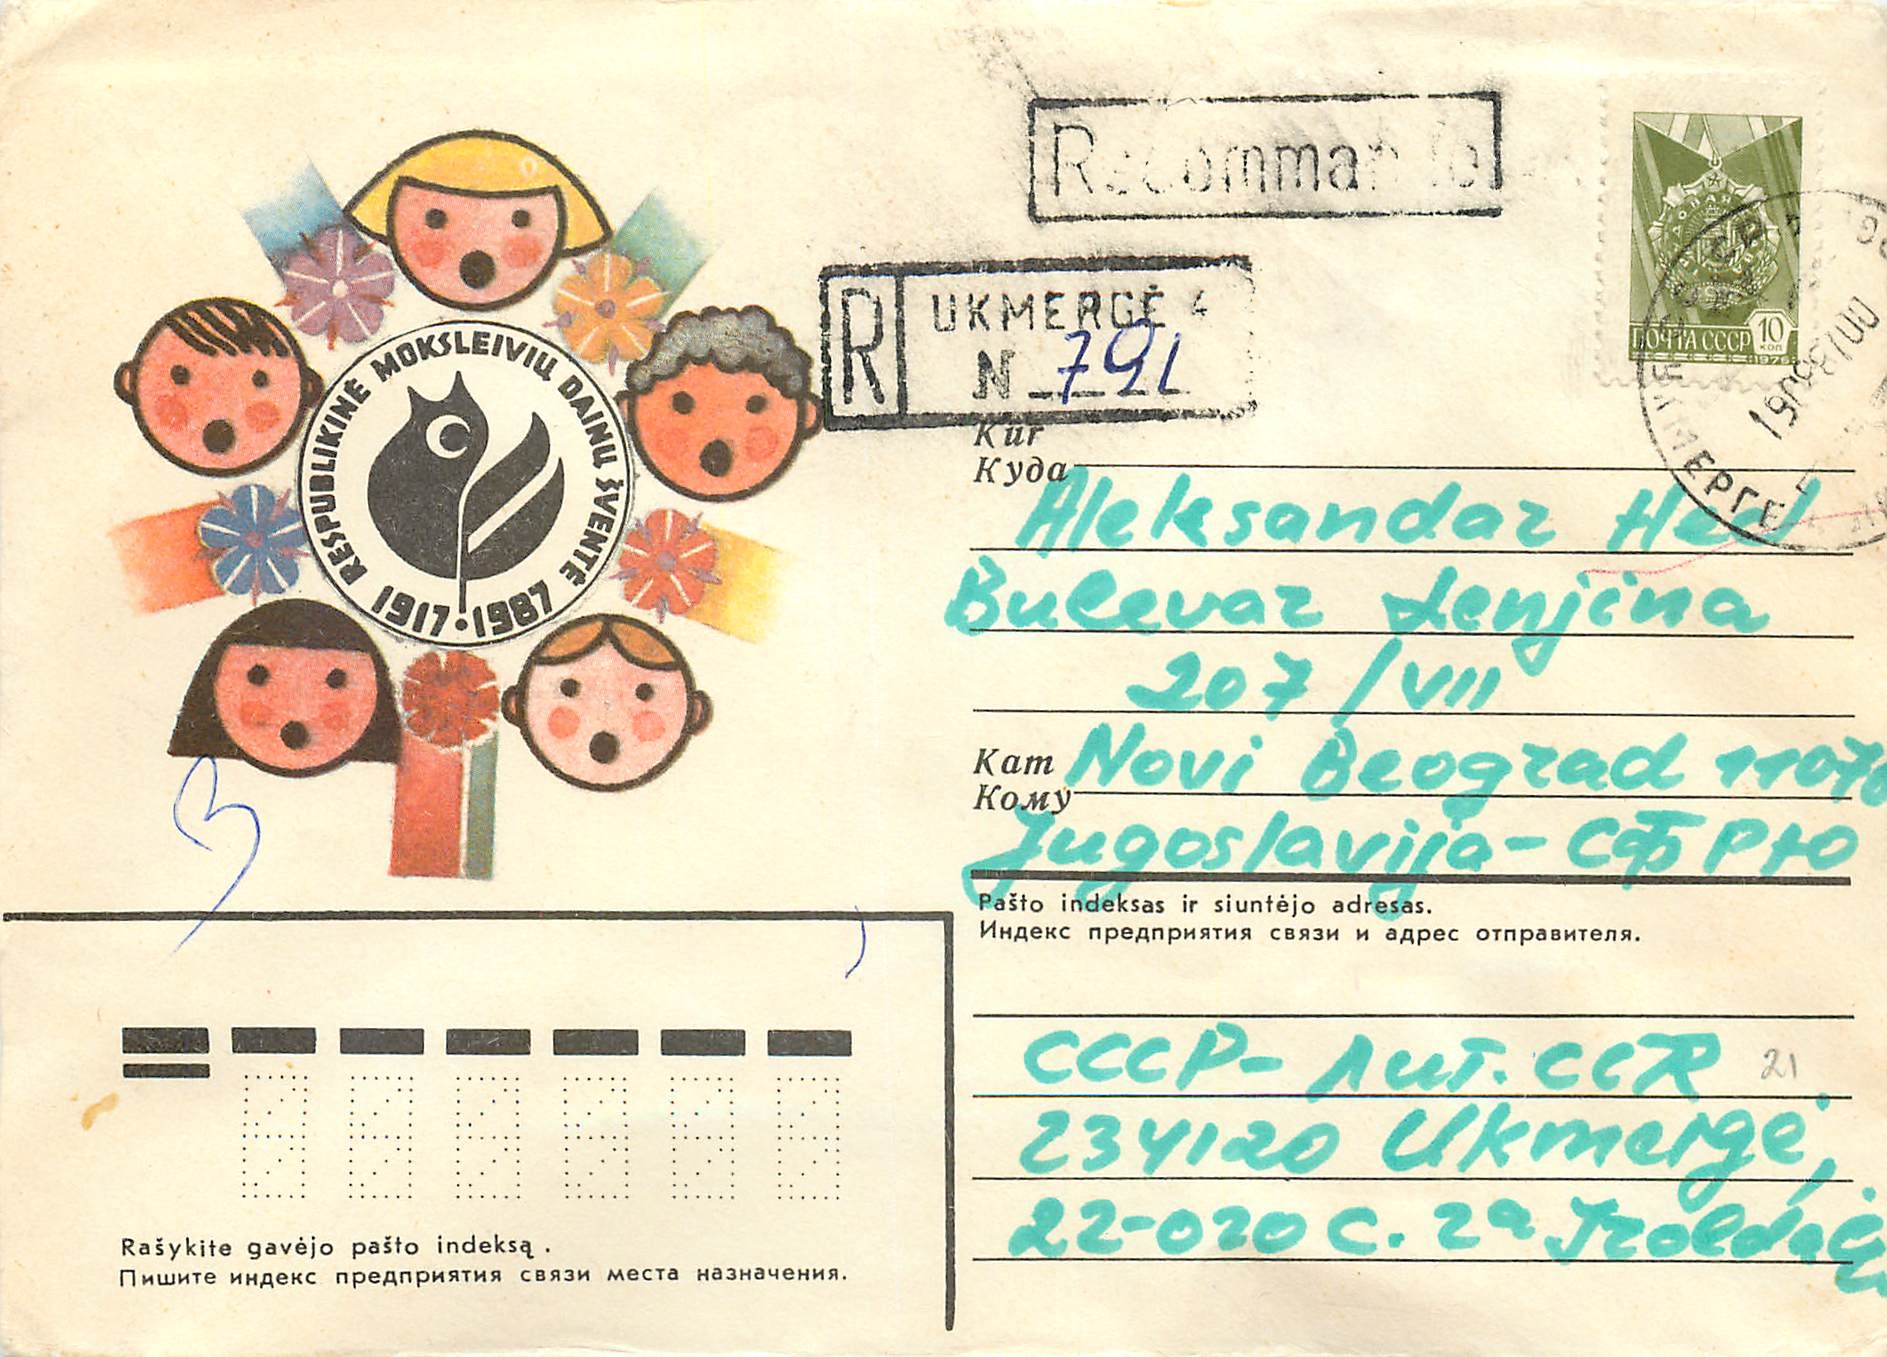 RESPUBLIKINĖ MOKSLEIVIŲ DAINŲ ŠVENTĖ
1917 • 1987
Recommandé
R
UKMERGĖ 4
N 791
ПОЧТА СССР
10
КОП
1976
УКМЕРГЕ
Kur
Куда
Aleksandar
Bulevar Lenjina
207/VII
Kam
Кому
Novi Beograd 11070
Jugoslavija - СФРЮ
Pašto indeksas ir siuntėjo adresas.
Индекс предприятия связи и адрес отправителя.
СССР - Лит. ССR
21
234120 Ukmergė,
22-020 C.
Rašykite gavėjo pašto indeksą.
Пишите индекс предприятия связи места назначения.